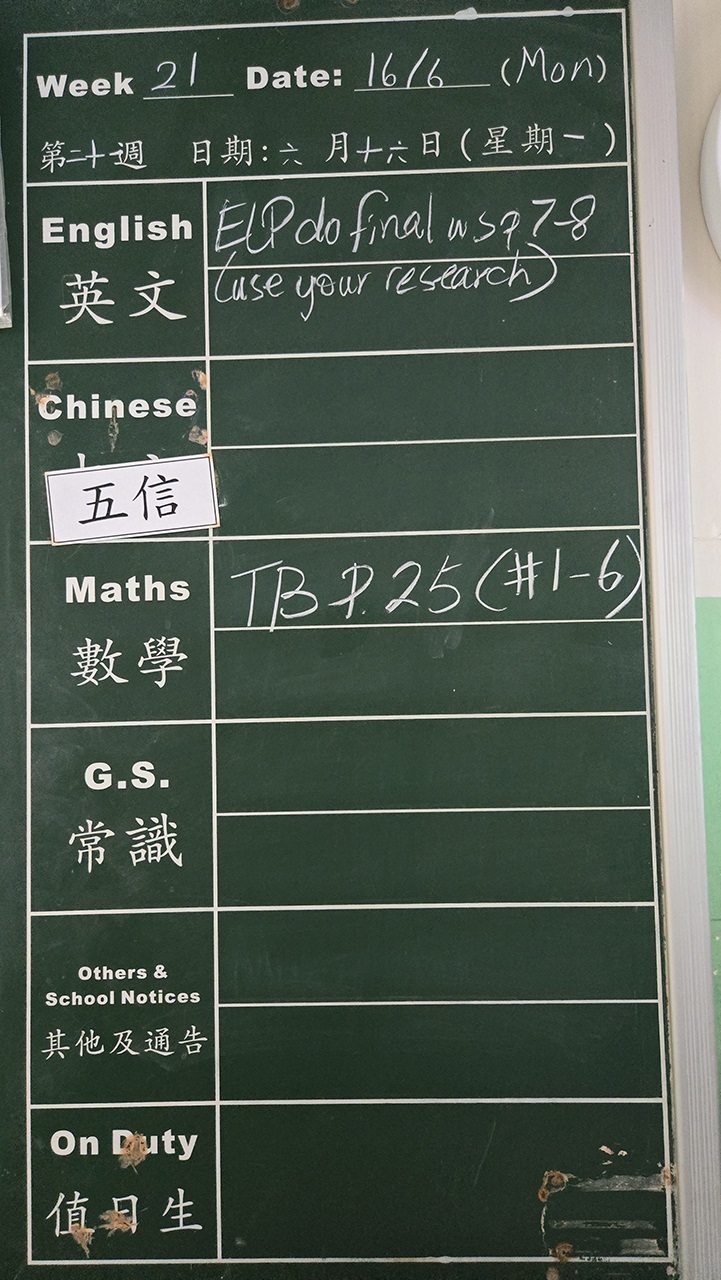 Week 21 Date: 16/6 (Mon)
第二十週 日期:六月十六日(星期一)
English
英文
ELP do final wsp7-8
(use your research)
Chinese
五信
Maths
數學
TB P.25 (#1-6)
G.S.
常識
Others &
School Notices
其他及通告
On Duty
值日生